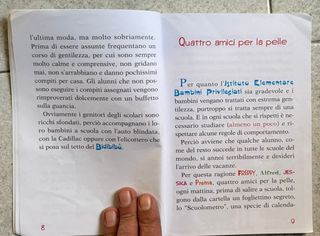 l'ultima moda, ma molto sobriamente.
Prima di essere assunte frequentano un
corso di gentilezza, per cui sono sempre
molto calme e comprensive, non gridano
mai, non s'arrabbiano e danno pochissimi
compiti per casa. Gli alunni che non pos-
sono eseguire i compiti assegnati vengono
rimproverati dolcemente con un buffetto
sulla guancia.
Ovviamente i genitori degli scolari sono
ricchi sfondati, perciò accompagnano i lo-
ro bambini a scuola con l'auto blindata,
con la Cadillac oppure con l'elicottero che
si posa sul tetto del Bibibibù.
8
Quattro amici per la pelle
Per quanto l'Istituto Elementare
Bambini Privilegiati sia gradevole e i
bambini vengano trattati con estrema gen-
tilezza, purtroppo si tratta sempre di una
scuola. E in ogni scuola che si rispetti è ne-
cessario studiare (almeno un poco) e ri-
spettare alcune regole di comportamento.
Perciò avviene che qualche alunno, co-
me del resto succede in tutte le scuole del
mondo, si annoi terribilmente e desideri
l'arrivo delle vacanze.
Per questa ragione FREDDY, Alfred, JES-
SICA e Promo, quattro amici per la pelle,
ogni mattina, prima di salire a scuola, tol-
gono dalla cartella un fogliettino segreto,
lo "Scuolometro", una specie di calenda-
9